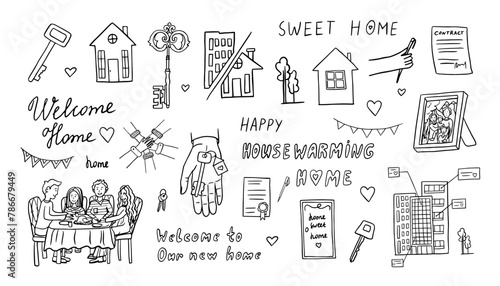 SWEET HOME
CONTRACT
Welcome
Home
HAPPY
HOUSEWARMING
HOME
home
home
sweet
home
Welcome to
Our new home
Adobe Stock | #786679449